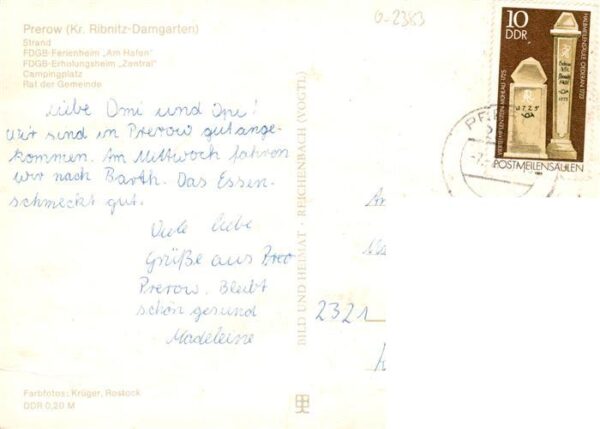 Prerow (Kr. Ribnitz-Damgarten)
Strand
FDGB-Ferienheim „Am Hafen"
FDGB-Erholungsheim „Zentral"
Campingplatz
Rat der Gemeinde
6-2383
Liebe Omi und Opi!
Wir sind in Prerow gut ange-
kommen. Am Mittwoch fahren
wir nach Barth. Das Essen
schmeckt gut.
Viele liebe
Grüße aus Prero
Prerow. Bleibt
schön gesund
Madeleine
BILD UND HEIMAT · REICHENBACH (VOGTL)
10
DDR
POSTMEILENSÄULEN
2321
Farbfotos: Krüger, Rostock
DDR 0,20 M